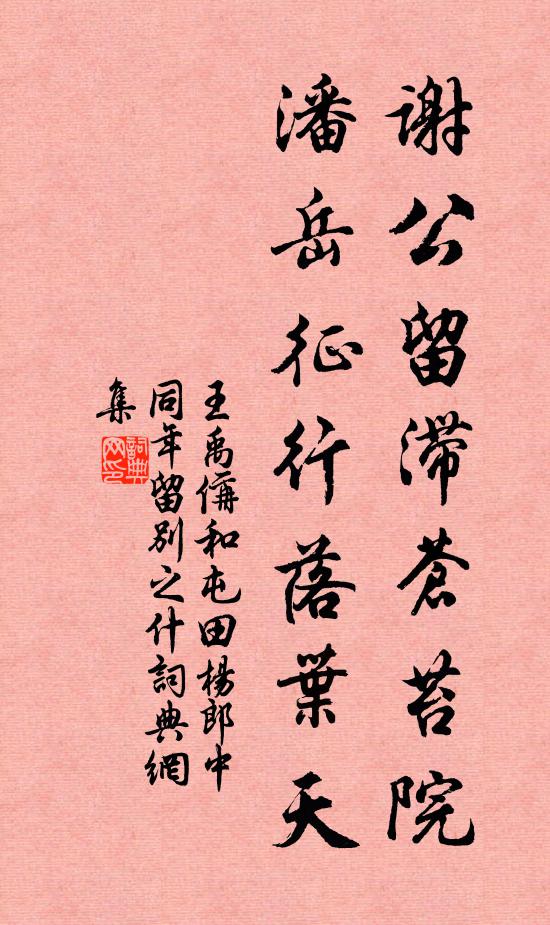 謝公留滯蒼苔院
潘岳征行落葉天
王禹偁和屯田楊郎中
同年留別之什詞典網
集
詞典
网印